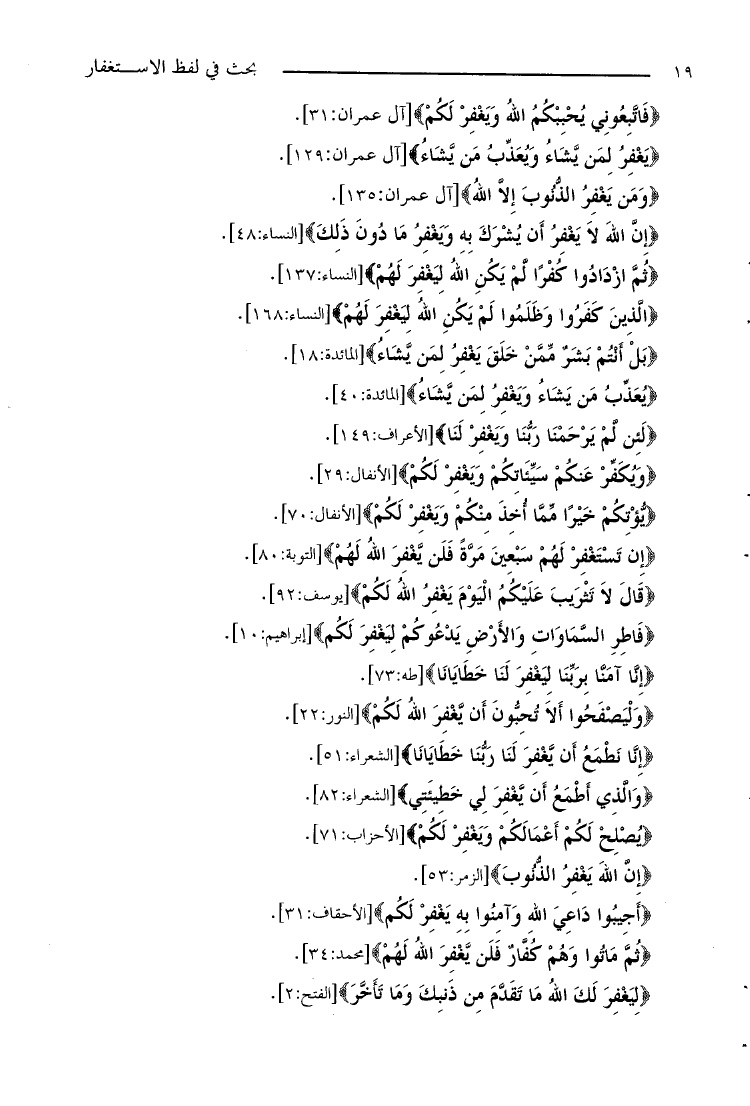 ١٩ بحث في لفظ الاستغفار
﴿فَاتَّبِعُونِي يُحْبِبْكُمُ اللهُ وَيَغْفِرْ لَكُمْ﴾[آل عمران:٣١].
﴿يَغْفِرُ لِمَن يَّشَاءُ وَيُعَذِّبُ مَن يَّشَاءُ﴾[آل عمران:١٢٩].
﴿وَمَن يَغْفِرُ الذُّنُوبَ إِلاَّ اللهُ﴾[آل عمران:١٣٥].
﴿إِنَّ اللهَ لاَ يَغْفِرُ أَن يُشْرَكَ بِهِ وَيَغْفِرُ مَا دُونَ ذَلِكَ﴾[النساء:٤٨].
﴿ثُمَّ ازْدَادُوا كُفْرًا لَّمْ يَكُنِ اللهُ لِيَغْفِرَ لَهُمْ﴾[النساء:١٣٧].
﴿الَّذِينَ كَفَرُوا وَظَلَمُوا لَمْ يَكُنِ اللهُ لِيَغْفِرَ لَهُمْ﴾[النساء:١٦٨].
﴿بَلْ أَنْتُمْ بَشَرٌ مِّمَّنْ خَلَقَ يَغْفِرُ لِمَن يَّشَاءُ﴾[المائدة:١٨].
﴿يُعَذِّبُ مَن يَشَاءُ وَيَغْفِرُ لِمَن يَّشَاءُ﴾[المائدة:٤٠].
﴿لَئِن لَّمْ يَرْحَمْنَا رَبُّنَا وَيَغْفِرْ لَنَا﴾[الأعراف:١٤٩].
﴿وَيُكَفِّرْ عَنكُمْ سَيِّئَاتِكُمْ وَيَغْفِرْ لَكُمْ﴾[الأنفال:٢٩].
﴿يُّؤْتِكُمْ خَيْرًا مِّمَّا أُخِذَ مِنْكُمْ وَيَغْفِرْ لَكُمْ﴾[الأنفال:٧٠].
﴿إِن تَسْتَغْفِرْ لَهُمْ سَبْعِينَ مَرَّةً فَلَن يَّغْفِرَ اللهُ لَهُمْ﴾[التوبة:٨٠].
﴿قَالَ لاَ تَثْرِيبَ عَلَيْكُمُ الْيَوْمَ يَغْفِرُ اللهُ لَكُمْ﴾[يوسف:٩٢].
﴿فَاطِرِ السَّمَاوَاتِ وَالأَرْضِ يَدْعُوكُمْ لِيَغْفِرَ لَكُم﴾[إبراهيم:١٠].
﴿إِنَّا آمَنَّا بِرَبِّنَا لِيَغْفِرَ لَنَا خَطَايَانَا﴾[طه:٧٣].
﴿وَلْيَصْفَحُوا أَلاَ تُحِبُّونَ أَن يَّغْفِرَ اللهُ لَكُمْ﴾[النور:٢٢].
﴿إِنَّا نَطْمَعُ أَن يَّغْفِرَ لَنَا رَبُّنَا خَطَايَانَا﴾[الشعراء:٥١].
﴿وَالَّذِي أَطْمَعُ أَن يَّغْفِرَ لِي خَطِيئَتِي﴾[الشعراء:٨٢].
﴿يُصْلِحْ لَكُمْ أَعْمَالَكُمْ وَيَغْفِرْ لَكُمْ﴾[الأحزاب:٧١].
﴿إِنَّ اللهَ يَغْفِرُ الذُّنُوبَ﴾[الزمر:٥٣].
﴿أَجِيبُوا دَاعِيَ اللهِ وَآمِنُوا بِهِ يَغْفِرْ لَكُم﴾[الأحقاف:٣١].
﴿ثُمَّ مَاتُوا وَهُمْ كُفَّارٌ فَلَن يَّغْفِرَ اللهُ لَهُمْ﴾[محمد:٣٤].
﴿لِيَغْفِرَ لَكَ اللهُ مَا تَقَدَّمَ مِن ذَنبِكَ وَمَا تَأَخَّرَ﴾[الفتح:٢].